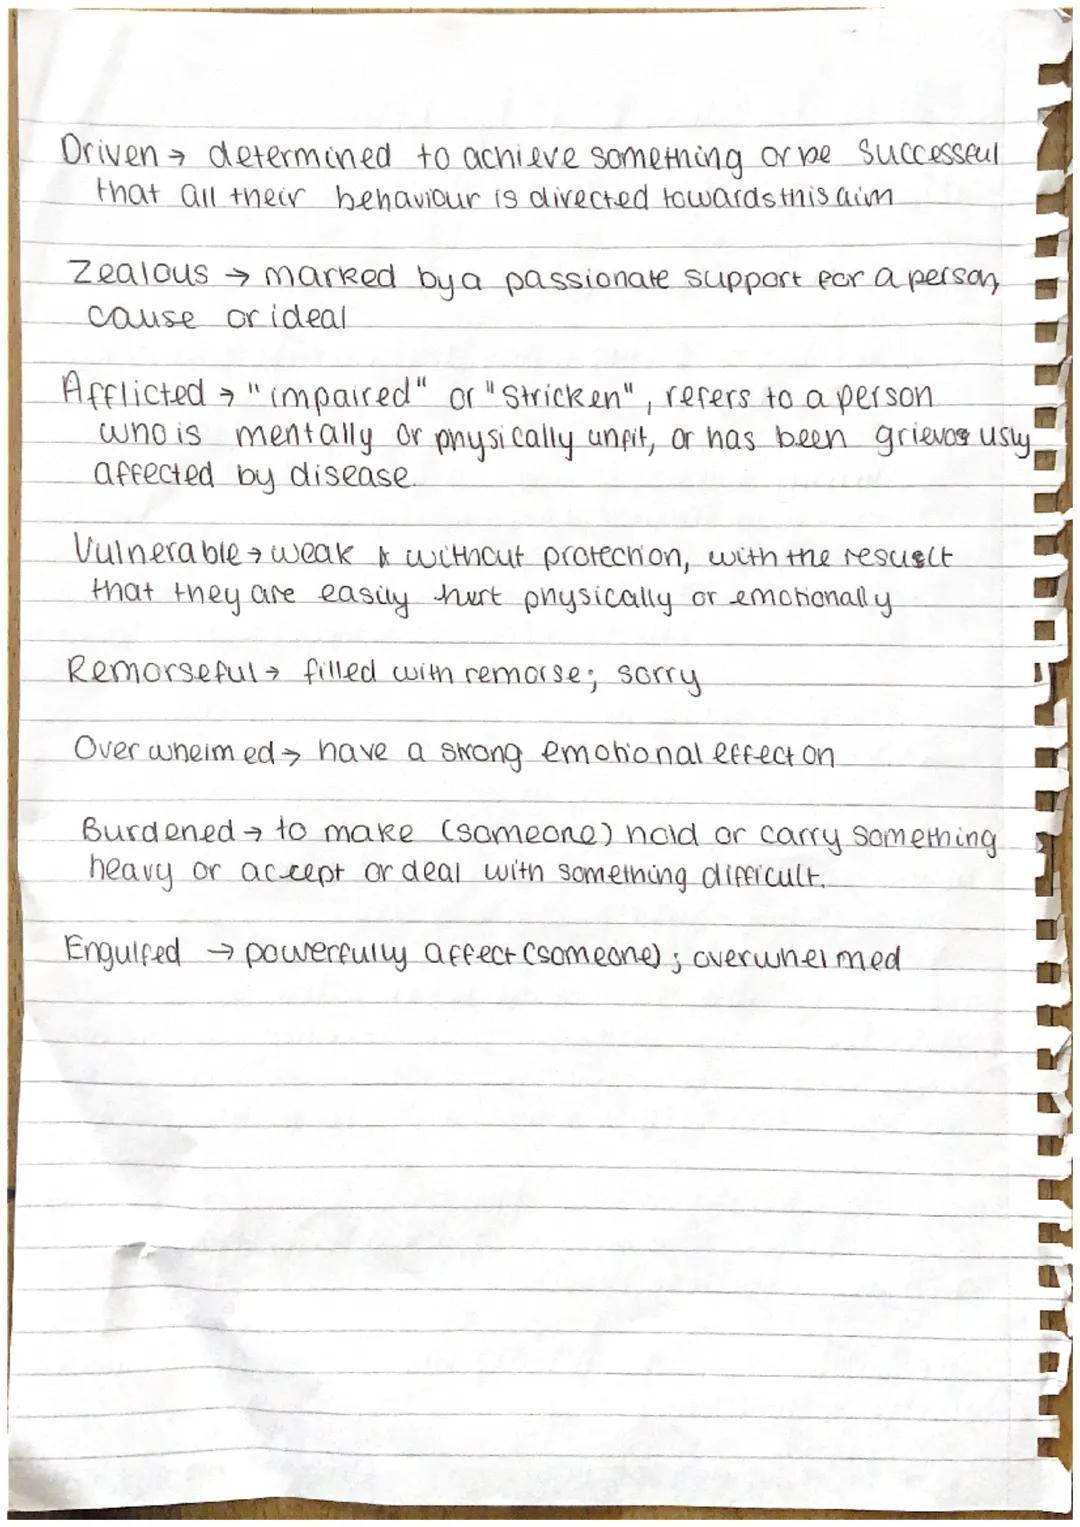 Driven → determined to achieve something or be successful
that all their behaviour is directed towards this aim
Zealous → marked by a passionate support for a person,
cause or ideal
Afflicted → "impaired" or "stricken", refers to a person
who is mentally or physically unfit, or has been grievously
affected by disease.
Vulnerable → weak & without protection, with the result
that they are easily hurt physically or emotionally
Remorseful → filled with remorse; sorry
Overwhelmed → have a strong emotional effect on
Burdened → to make (someone) hold or carry something
heavy or accept or deal with something difficult.
Engulfed → powerfully affect (someone); overwhelmed